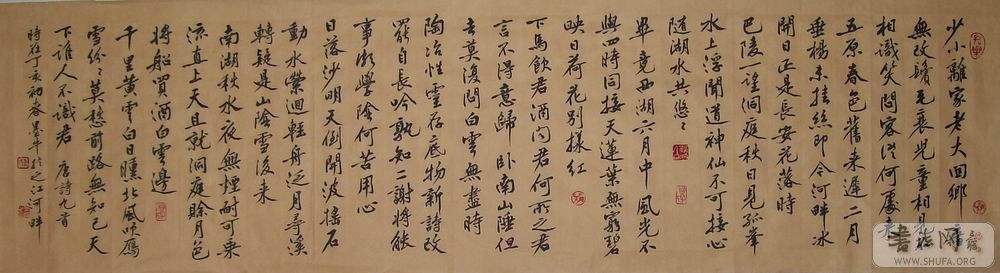 少小離家老大回鄉音
無改鬢毛衰兒童相見不
相識笑問客從何處來
五原春色舊来遲二月
垂楊未挂絲即今河畔冰
開日正是長安花落時
巴陵一望洞庭秋日見孤峯
水上浮聞道神仙不可接心
隨湖水共悠々
畢竟西湖六月中風光不
與四時同接天蓮葉無窮碧
映日荷花别樣紅
下馬飲君酒問君何所之君
言不得意歸卧南山陲但
去莫復問白雲無盡時
陶冶性靈存底物新詩改
罷自長吟孰知二謝將能
事頗學陰何苦用心
日落沙明天倒開波搖石
動水縈迴輕舟泛月尋溪
轉疑是山陰雪後来
南湖秋水夜無煙耐可乘
流直上天且就洞庭賒月色
將船買酒白雲邊
千里黄雲白日曛北風吹鴈
雪紛々莫愁前路無知己天
下誰人不識君 唐詩九首
時在丁亥初春墨牛於之江河畔
书法网
WWW.SHUFA.ORG